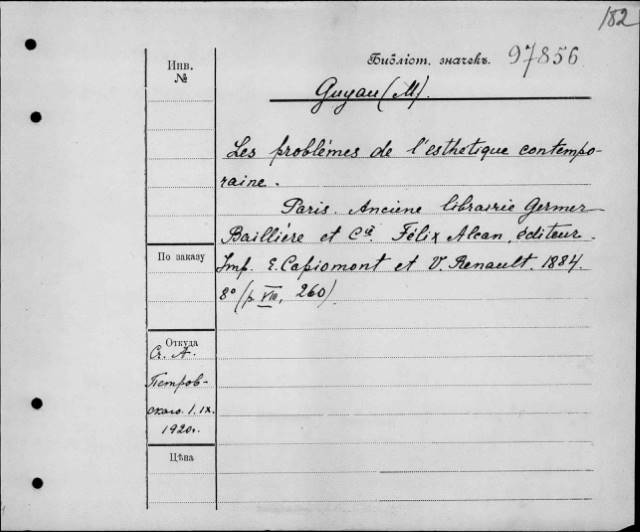 182
Инв.
№
Библіот. значекъ. 97856
Guyau (M).
Les problémes de l'esthetique contempo-
raine.
Paris. Anciène librairie Germer
Baillière et Cie. Félix Alcan, éditeur.
По заказу
Imp. E. Capiomont et V. Renault. 1884.
8° (p. VIII, 260)
Откуда
Ст. А.
Петров-
скаго. 1. IX.
1920г.
Цѣна